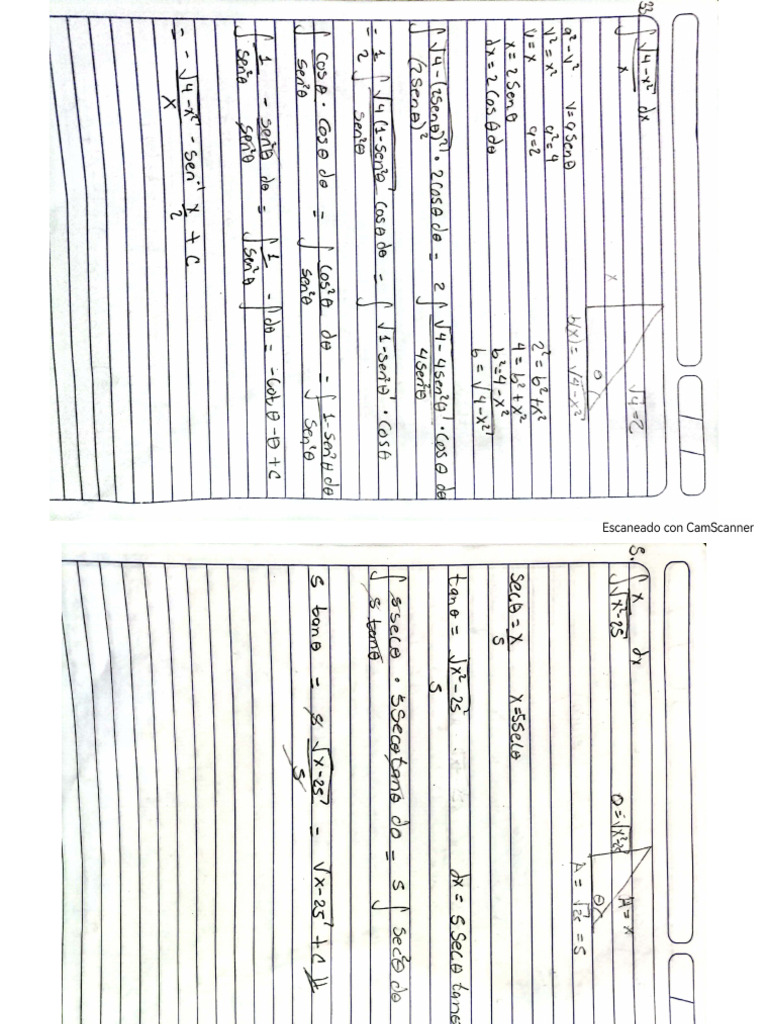 33. ∫ √4-x² / x dx
√4=2
a²-v² v=a senθ
v²=x² a²=4
v=x a=2
x=2senθ
dx=2cosθdθ
x
θ
b(x)=√4-x²
2²=b²+x²
4=b²+x²
b²=4-x²
b=√4-x²
∫ √4-(2senθ)² / (2senθ)² · 2cosθdθ = 2 ∫ √4-4sen²θ / 4sen²θ · cosθ dθ
= 1/2 ∫ √4(1-sen²θ / sen²θ cosθdθ = ∫ √1-sen²θ · cosθ
∫ cosθ · cosθ dθ / sen²θ = ∫ cos²θ / sen²θ dθ = ∫ 1-sen²θ dθ / sen²θ
∫ 1 / sen²θ - sen²θ / sen²θ dθ = ∫ 1 / sen²θ - ∫dθ = -cotθ-θ+C
= - √4-x² / x - sen⁻¹ x/2 + C
Escaneado con CamScanner
5. ∫ x / √x²-25 dx
O=√x²-25
H=x
θ
A=√25=5
secθ = x/5 x=5secθ
tanθ = √x²-25 / 5 dx=5secθtanθ
∫ 5secθ / 5tanθ · 5secθtanθ dθ = 5 ∫ sec²θ dθ
5 tanθ = 5 √x-25 / 5 = √x-25 + C